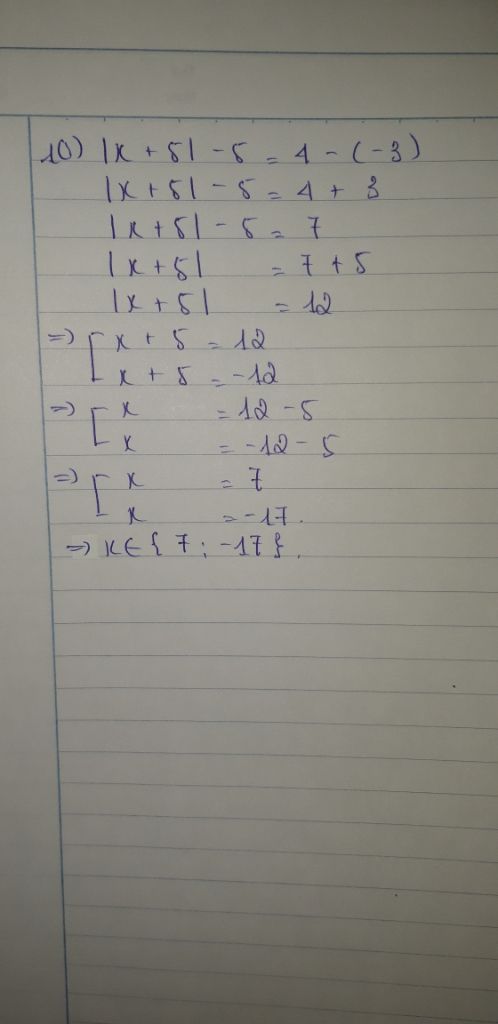 10) |x + 5| - 5 = 4 - (-3)
|x + 5| - 5 = 4 + 3
|x + 5| - 5 = 7
|x + 5| = 7 + 5
|x + 5| = 12
=> [ x + 5 = 12
x + 5 = -12
=> [ x = 12 - 5
x = -12 - 5
=> [ x = 7
x = -17.
=> x ∈ { 7 ; -17 }.